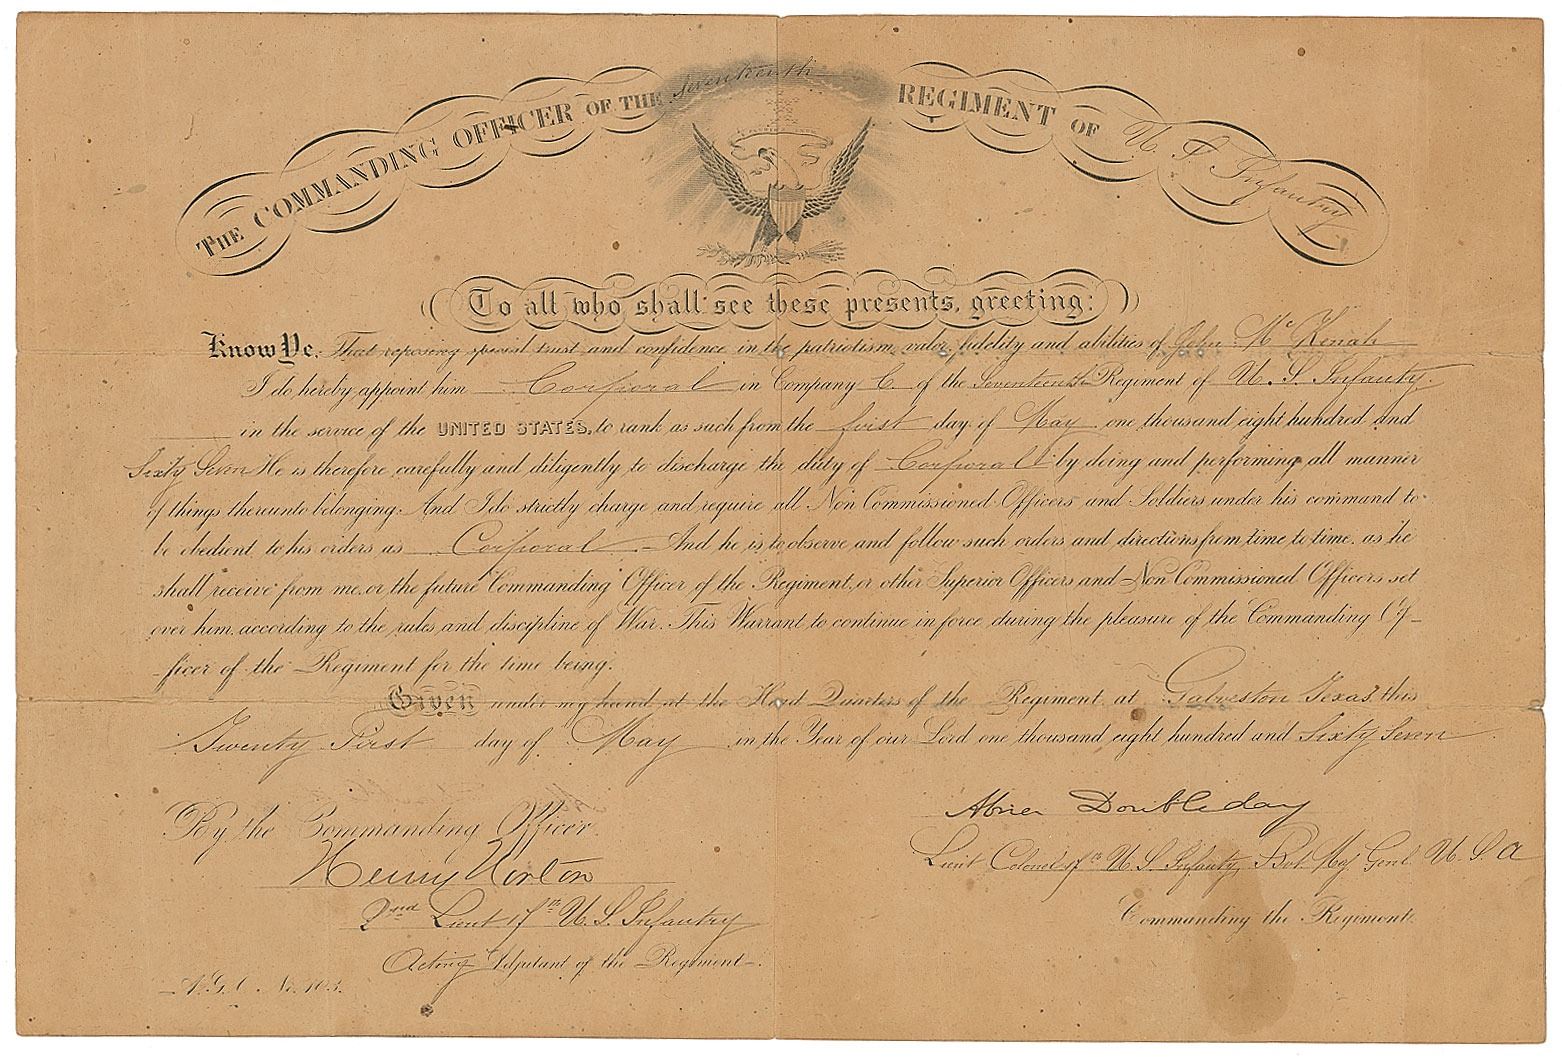 THE COMMANDING OFFICER OF THE Seventeenth REGIMENT OF U. S. Infantry.
To all who shall see these presents, greeting:
Know Ye, That reposing special trust and confidence in the patriotism, valor, fidelity and abilities of John Mc Kenah
I do hereby appoint him Corporal in Company C. of the Seventeenth Regiment of U. S. Infanty.
in the service of the UNITED STATES, to rank as such from the first day of May one thousand eight hundred and
Sixty Seven He is therefore carefully and diligently to discharge the duty of Corporal by doing and performing all manner
of things thereunto belonging. And I do strictly charge and require all Non Commissioned Officers and Soldiers under his command to
be obedient to his orders as Corporal. And he is to observe and follow such orders and directions from time to time, as he
shall receive from me, or the future Commanding Officer of the Regiment, or other Superior Officers and Non Commissioned Officers set
over him, according to the rules, and discipline of War. This Warrant to continue in force during the pleasure of the Commanding Of-
ficer of the Regiment for the time being.
Given under my hand at the Head Quarters of the Regiment at Galveston Texas this
Twenty First day of May in the Year of our Lord one thousand eight hundred and Sixty Seven
By the Commanding Officer.
Abner Doubleday
Henry Norton
Lieut Colonel 17th U. S. Infanty, Bvt. Maj Genl. U. S. A
2nd Lieut 17th U. S. Infantry
Commanding the Regiment.
Acting Adjutant of the Regiment.
A. G. O. No. 103.